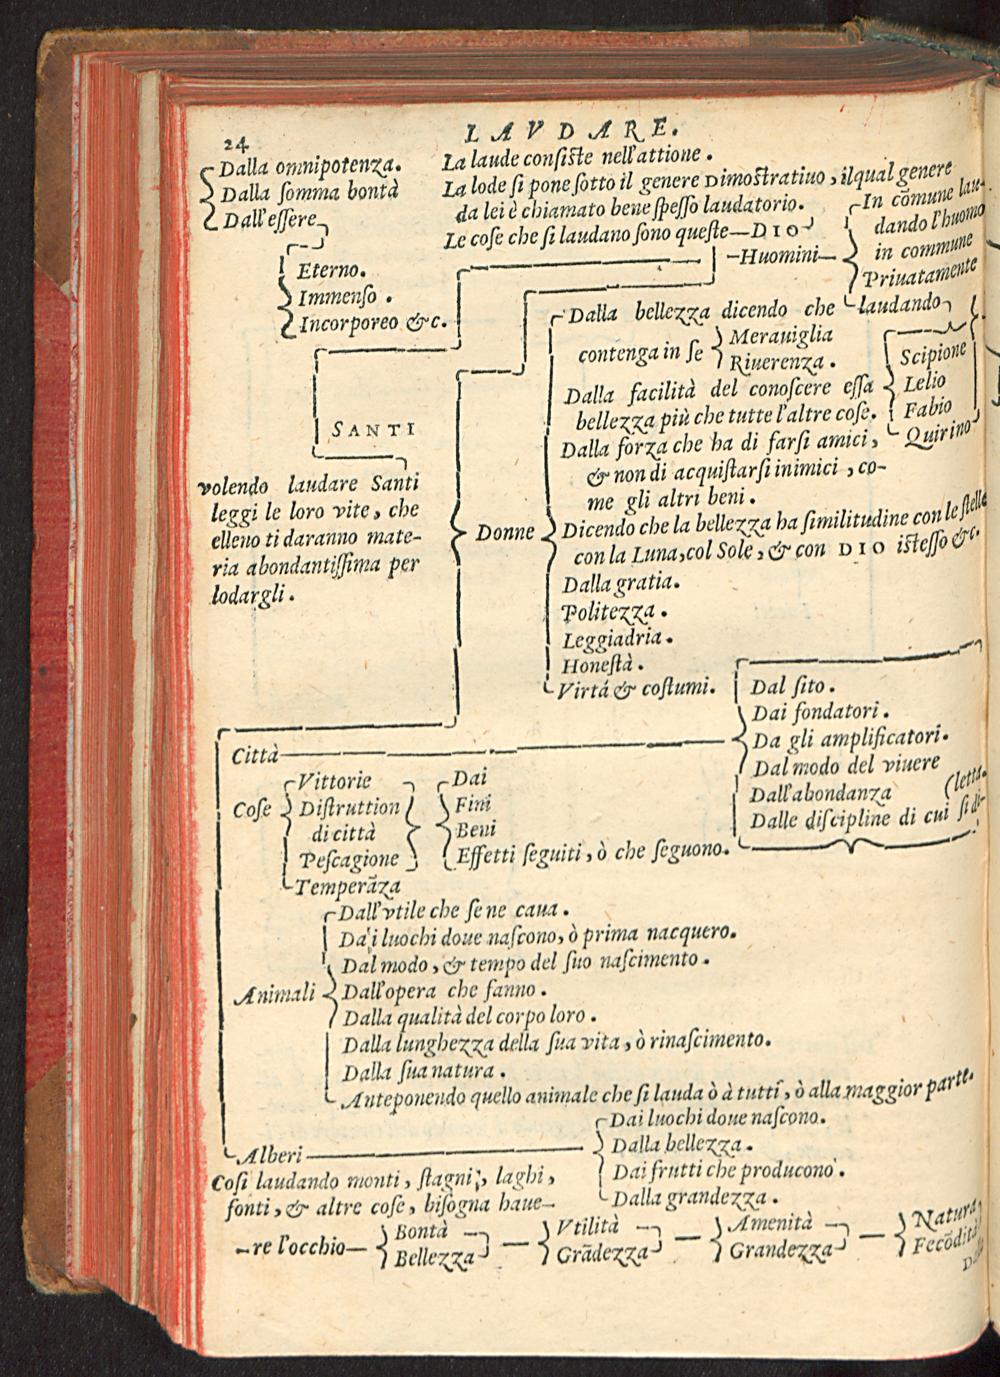 24
LAVDARE.
La laude consiste nell'attione.
La lode si pone sotto il genere Dimostratiuo, ilqual genere
da lei è chiamato bene spesso laudatorio.
Le cose che si laudano sono queste—DIO
Dalla omnipotenza.
Dalla somma bontà
Dall'essere
Eterno.
Immenso.
Incorporeo &c.
SANTI
volendo laudare Santi
leggi le loro vite, che
elleno ti daranno mate-
ria abondantissima per
lodargli.
—Huomini—
In cōmune lau-
dando l'huomo
in commune
Priuatamente
laudando
Scipione
Lelio
Fabio
Quirino
Donne
Dalla bellezza dicendo che
contenga in se
Merauiglia
Riuerenza.
Dalla facilità del conoscere essa
bellezza più che tutte l'altre cose.
Dalla forza che ha di farsi amici,
& non di acquistarsi inimici, co-
me gli altri beni.
Dicendo che la bellezza ha similitudine con le stelle
con la Luna, col Sole, & con DIO istesso &c.
Dalla gratia.
Politezza.
Leggiadria.
Honestà.
Virtá & costumi.
Città
Dal sito.
Dai fondatori.
Da gli amplificatori.
Dal modo del viuere
Dall'abondanza (letta.
Dalle discipline di cui si di-
Cose
Vittorie
Distruttion
di città
Pescagione
Temperāza
Dai
Fini
Beni
Effetti seguiti, ò che seguono.
Animali
Dall'vtile che se ne caua.
Da i luochi doue nascono, ò prima nacquero.
Dal modo, & tempo del suo nascimento.
Dall'opera che fanno.
Dalla qualità del corpo loro.
Dalla lunghezza della sua vita, ò rinascimento.
Dalla sua natura.
Anteponendo quello animale che si lauda ò à tutti, ò alla maggior parte.
Alberi
Dai luochi doue nascono.
Dalla bellezza.
Dai frutti che producono.
Dalla grandezza.
Cosi laudando monti, stagni, laghi,
fonti, & altre cose, bisogna haue-
re l'occhio—
Bontà
Bellezza
Vtilità
Grādezza
Amenità
Grandezza
Natura
Fecōdità